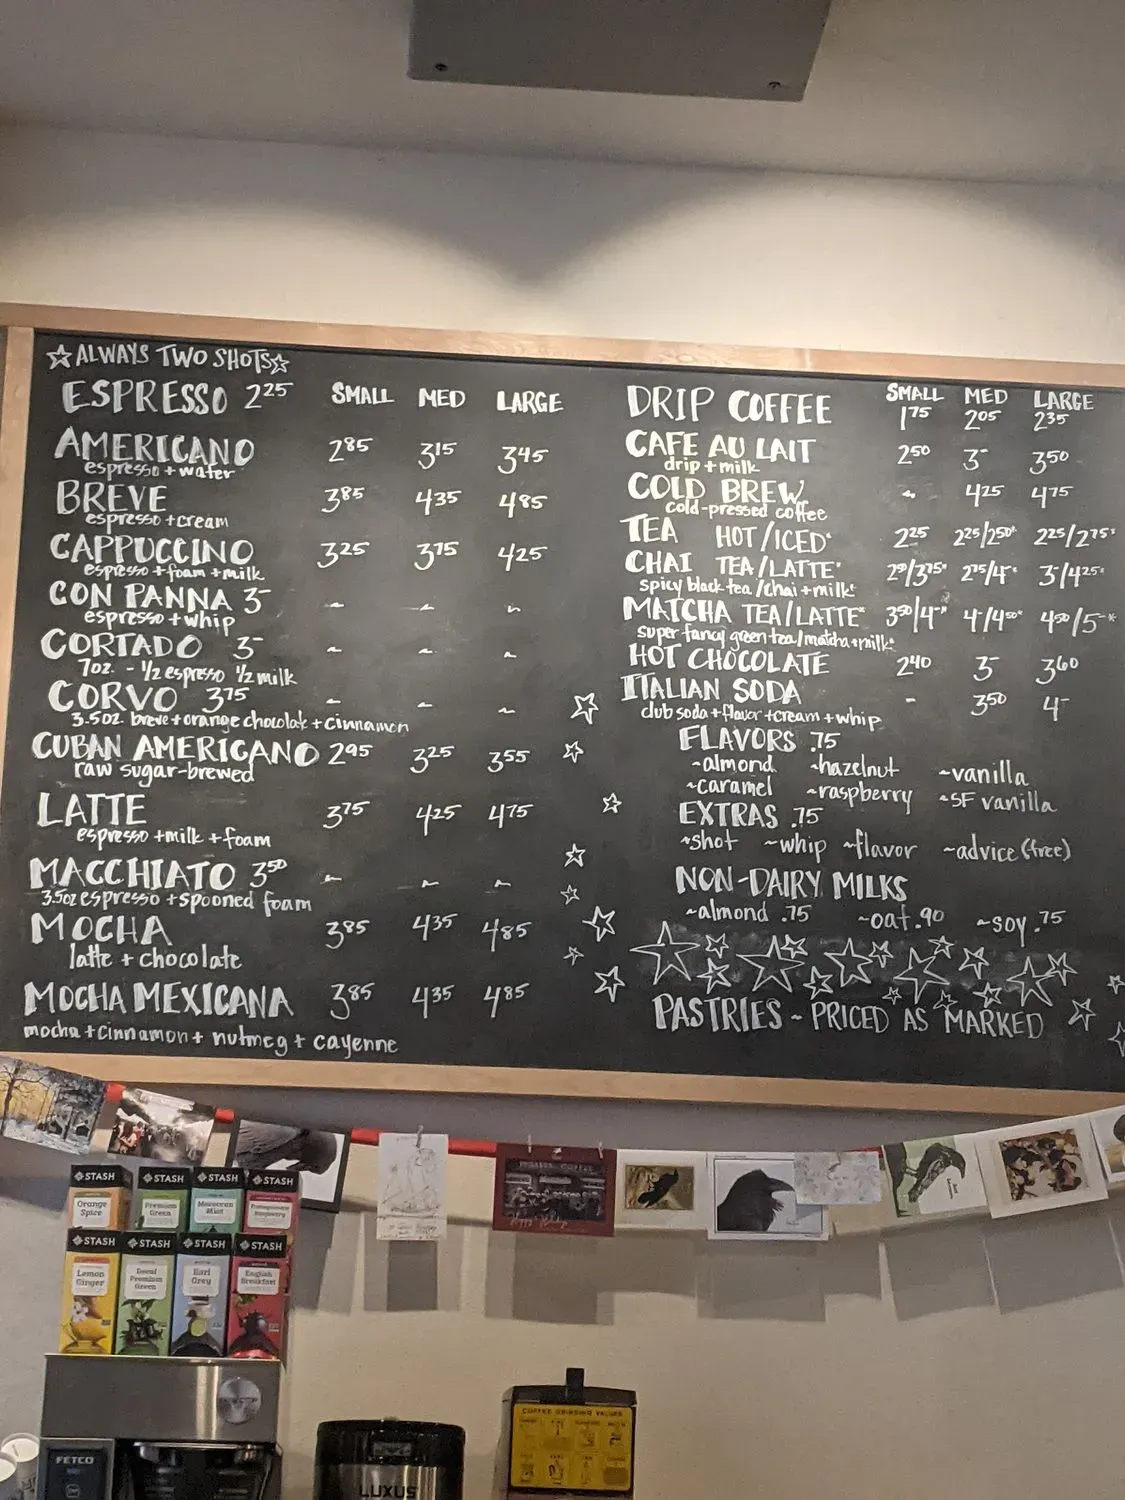 ☆ALWAYS TWO SHOTS☆
ESPRESSO 2.25 SMALL MED LARGE
AMERICANO 2.85 3.15 3.45
espresso + water
BREVE 3.85 4.35 4.85
espresso + cream
CAPPUCCINO 3.25 3.75 4.25
espresso + foam + milk
CON PANNA 3- ~ ~ ~
espresso + whip
CORTADO 3- ~ ~ ~
7oz. - 1/2 espresso 1/2 milk
CORVO 3.75 ~ ~ ~
3.5oz breve + orange chocolate + cinnamon
CUBAN AMERICANO 2.95 3.25 3.55
raw sugar-brewed
LATTE 3.75 4.25 4.75
espresso + milk + foam
MACCHIATO 3.50 ~ ~ ~
3.5oz espresso + spooned foam
MOCHA 3.85 4.35 4.85
latte + chocolate
MOCHA MEXICANA 3.85 4.35 4.85
mocha + cinnamon + nutmeg + cayenne
SMALL MED LARGE
DRIP COFFEE 1.75 2.05 2.35
CAFE AU LAIT 2.50 3- 3.50
drip + milk
COLD BREW ~ 4.25 4.75
cold-pressed coffee
TEA HOT/ICED* 2.25 2.25/2.50* 2.25/2.75*
CHAI TEA/LATTE* 2.75/4-* 3-/4.25*
spicy black tea/chai + milk*
MATCHA TEA/LATTE* 3.50/4-* 4-/4.50* 4.50/5-*
super fancy green tea/matcha + milk*
HOT CHOCOLATE 2.40 3- 3.60
ITALIAN SODA - 3.50 4-
club soda + flavor + cream + whip
FLAVORS .75
~almond ~hazelnut ~vanilla
~caramel ~raspberry ~SF vanilla
EXTRAS .75
~shot ~whip ~flavor ~advice (free)
NON-DAIRY MILKS
~almond .75 ~oat .90 ~soy .75
PASTRIES ~ PRICED AS MARKED
STASH STASH STASH STASH
Orange Spice
Premium Green
Moroccan Mint
STASH STASH STASH STASH
Lemon Ginger
Decaf Premium Green
Earl Grey
English Breakfast
FETCO
LUXUS
COFFEE GRINDING VALUES